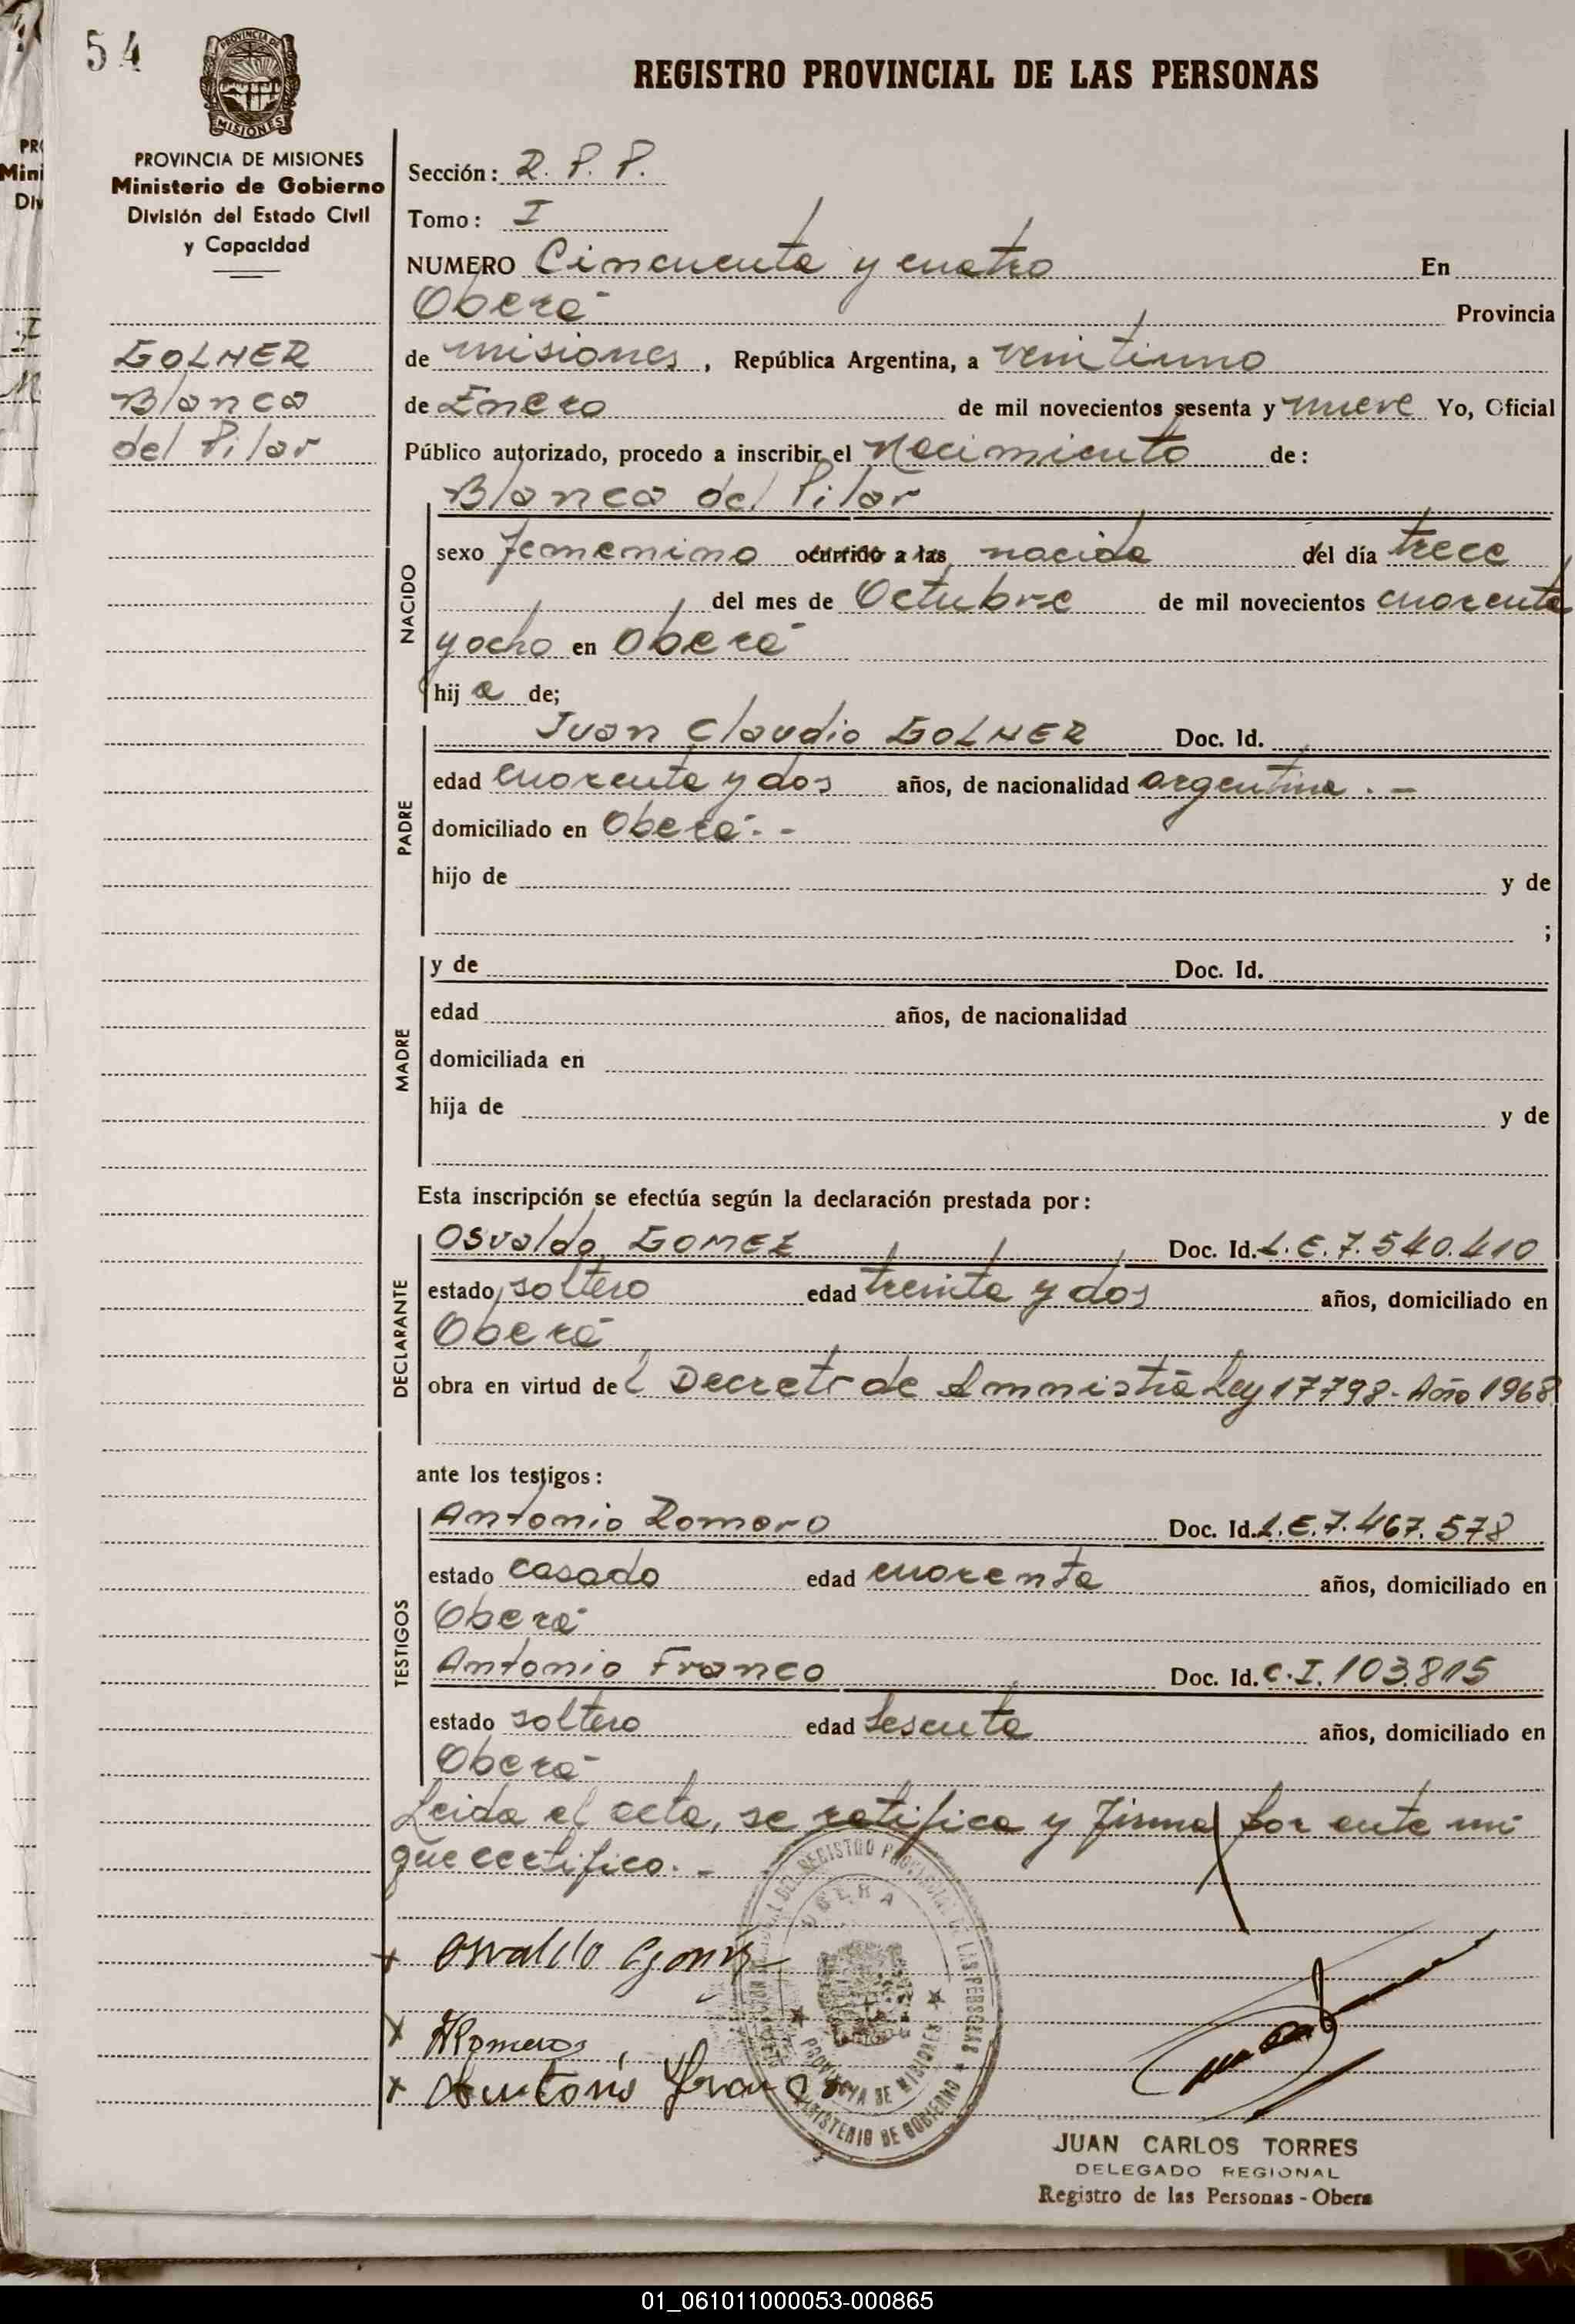 54
PROVINCIA DE
MISIONES
REGISTRO PROVINCIAL DE LAS PERSONAS
PROVINCIA DE MISIONES
Ministerio de Gobierno
División del Estado Civil
y Capacidad
GOLNER
Blanca
del Pilar
Sección: R. P. P.
Tomo: I
NUMERO Cincuenta y cuatro En
Oberá Provincia
de misiones, República Argentina, a veintiuno
de Enero de mil novecientos sesenta y nueve Yo, Oficial
Público autorizado, procedo a inscribir el Nacimiento de:
Blanca del Pilar
NACIDO
sexo femenino ocurrido a las nacida del día trece
del mes de Octubre de mil novecientos cuarenta
y ocho en Oberá
hij a de;
PADRE
Juan Claudio GOLNER Doc. Id.
edad cuarenta y dos años, de nacionalidad argentina. -
domiciliado en Oberá. -
hijo de y de
;
MADRE
y de Doc. Id.
edad años, de nacionalidad
domiciliada en
hija de y de
Esta inscripción se efectúa según la declaración prestada por:
DECLARANTE
Osvaldo GOMEZ Doc. Id. L.E. 7.540.410
estado soltero edad treinta y dos años, domiciliado en
Oberá
obra en virtud del Decreto de Amnistía Ley 17798- Año 1968
ante los testigos:
TESTIGOS
Antonio Romero Doc. Id. L.E. 7.467.578
estado casado edad cuarenta años, domiciliado en
Oberá
Antonio Franco Doc. Id. C.I. 103.815
estado soltero edad sesenta años, domiciliado en
Oberá
Leida el acta, se ratifica y firma por ante mi
que certifico. -
DEL REGISTRO PROVINCIAL DE LAS PERSONAS
OBERA
PROVINCIA DE MISIONES
MINISTERIO DE GOBIERNO
x Osvaldo Gomez
x ARomero
x Antonio Franco
JUAN CARLOS TORRES
DELEGADO REGIONAL
Registro de las Personas - Obera
01_061011000053-000865